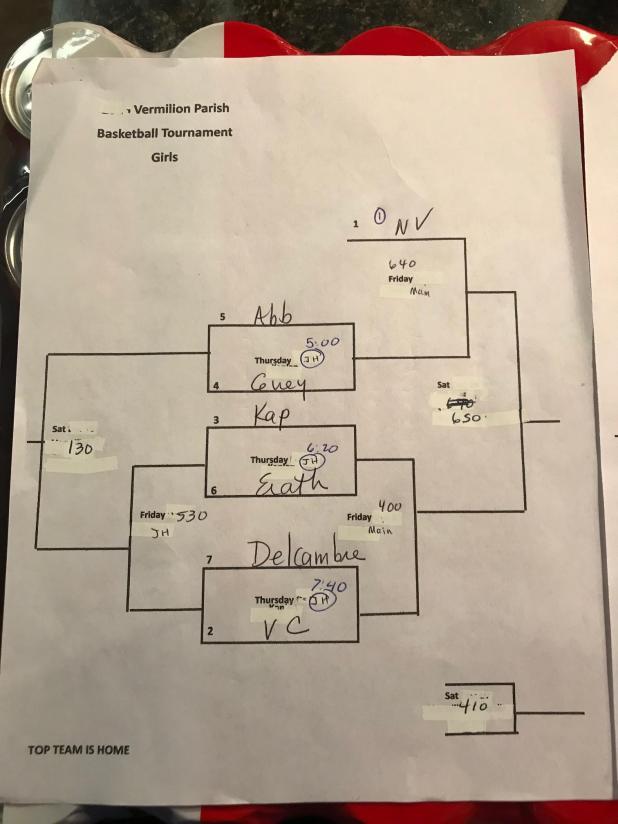 Vermilion Parish
Basketball Tournament
Girls
1 ① NV
640
Friday
Main
5 Abb
5:00
Thursday JH
4 Guey
Sat
650
3 Kap
6:20
Thursday JH
6 Erath
Sat
130
Friday 530
JH
Friday 400
Main
7 Delcambre
7:40
Thursday JH
2 VC
Sat
410
TOP TEAM IS HOME